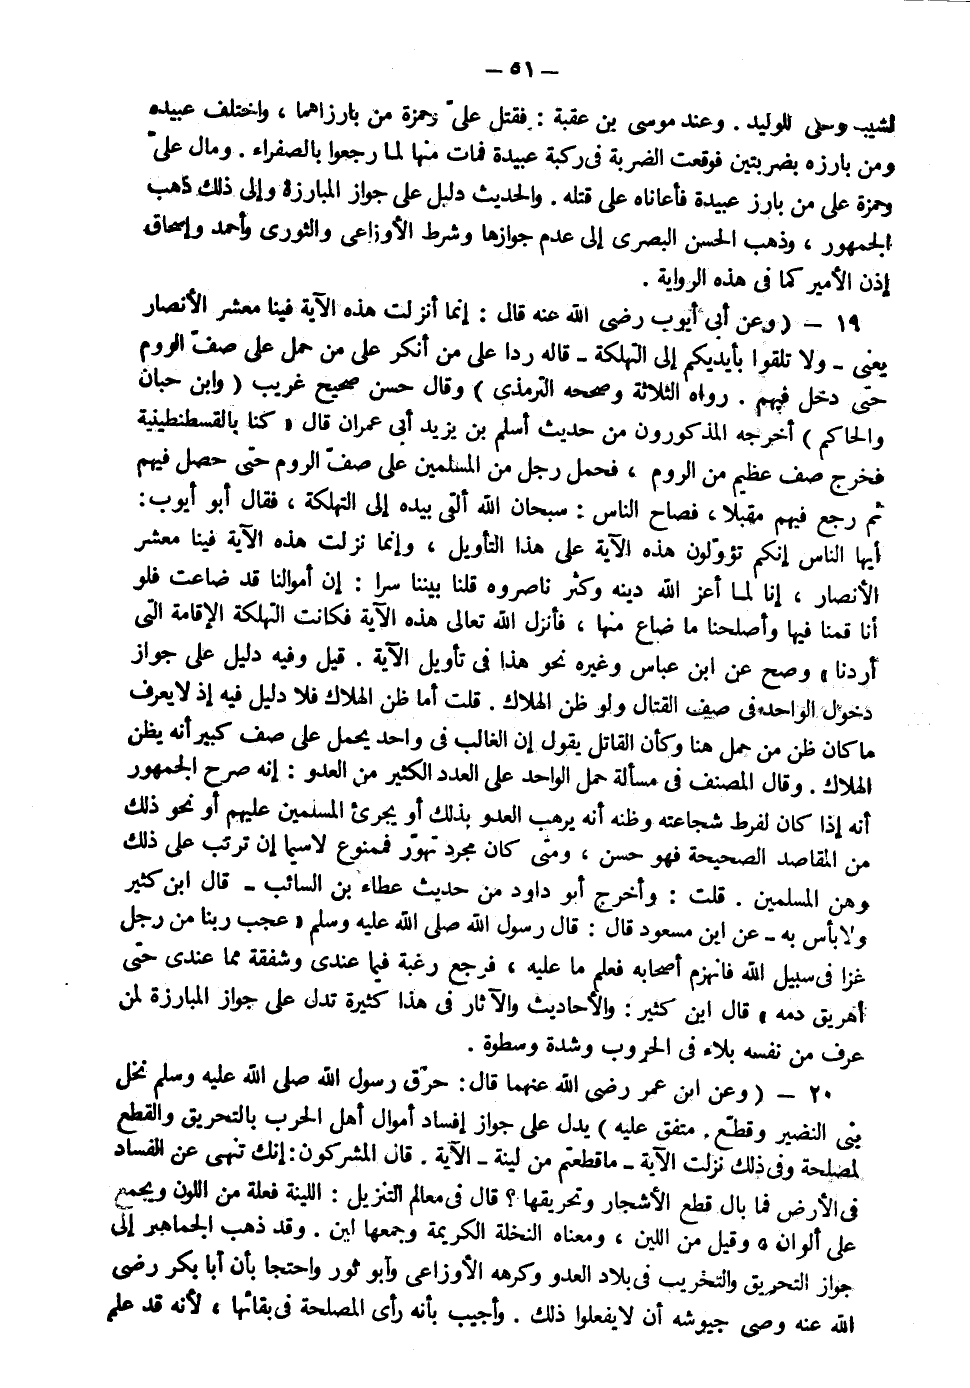 — ٥١ —
لشيب وعلى للوليد . وعند موسى بن عقبة : فقتل علىّ وحمزة من بارزاهما ، واختلف عبيده
ومن بارزه بضربتين فوقعت الضربة فى ركبة عبيدة فمات منها لما رجعوا بالصفراء . ومال علىّ
وحمزة على من بارز عبيدة فأعاناه على قتله . والحديث دليل على جواز المبارزة وإلى ذلك ذهب
الجمهور ، وذهب الحسن البصرى إلى عدم جوازها وشرط الأوزاعى والثورى وأحمد وإسحاق
إذن الأمير كما فى هذه الرواية .
١٩ — ( وعن أبى أيوب رضى الله عنه قال : إنما أنزلت هذه الآية فينا معشر الأنصار
يعنى ـ ولا تلقوا بأيديكم إلى التهلكة ـ قاله ردا على من أنكر على من حمل على صفّ الروم
حتى دخل فيهم . رواه الثلاثة وصححه الترمذى ) وقال حسن صحيح غريب ( وابن حبان
والحاكم ) أخرجه المذكورون من حديث أسلم بن يزيد أبى عمران قال « كنا بالقسطنطينية
فخرج صف عظيم من الروم ، فحمل رجل من المسلمين على صفّ الروم حتى حصل فيهم
ثم رجع فيهم مقبلا ، فصاح الناس : سبحان الله ألقى بيده إلى التهلكة ، فقال أبو أيوب :
أيها الناس إنكم تؤوّلون هذه الآية على هذا التأويل ، وإنما نزلت هذه الآية فينا معشر
الأنصار ، إنا لما أعز الله دينه وكثر ناصروه قلنا بيننا سرا : إن أموالنا قد ضاعت فلو
أنا قمنا فيها وأصلحنا ما ضاع منها ، فأنزل الله تعالى هذه الآية فكانت التهلكة الإقامة التى
أردنا » وصح عن ابن عباس وغيره نحو هذا فى تأويل الآية . قيل وفيه دليل على جواز
دخول الواحد فى صف القتال ولو ظن الهلاك . قلت أما ظن الهلاك فلا دليل فيه إذ لايعرف
ماكان ظن من حمل هنا وكأن القائل يقول إن الغالب فى واحد يحمل على صف كبير أنه يظن
الهلاك . وقال المصنف فى مسألة حمل الواحد على العدد الكثير من العدو : إنه صرح الجمهور
أنه إذا كان لفرط شجاعته وظنه أنه يرهب العدو بذلك أو يجرئ المسلمين عليهم أو نحو ذلك
من المقاصد الصحيحة فهو حسن ، ومتى كان مجرد تهوّر فممنوع لاسيما إن ترتب على ذلك
وهن المسلمين . قلت : وأخرج أبو داود من حديث عطاء بن السائب ـ قال ابن كثير
ولابأس به ـ عن ابن مسعود قال : قال رسول الله صلى الله عليه وسلم « عجب ربنا من رجل
غزا فى سبيل الله فانهزم أصحابه فعلم ما عليه ، فرجع رغبة فيما عندى وشفقة مما عندى حتى
أهريق دمه » قال ابن كثير : والأحاديث والآثار فى هذا كثيرة تدل على جواز المبارزة لمن
عرف من نفسه بلاء فى الحروب وشدة وسطوة .
٢٠ — ( وعن ابن عمر رضى الله عنهما قال : حرّق رسول الله صلى الله عليه وسلم نخل
بنى النضير وقطّع . متفق عليه ) يدل على جواز إفساد أموال أهل الحرب بالتحريق والقطع
لمصلحة وفى ذلك نزلت الآية ـ ماقطعتم من لينة ـ الآية . قال المشركون : إنك تنهى عن الفساد
فى الأرض فما بال قطع الأشجار وتحريقها ؟ قال فى معالم التنزيل : اللينة فعلة من اللون ويجمع
على ألوان ، وقيل من اللين ، ومعناه النخلة الكريمة وجمعها لين . وقد ذهب الجماهير إلى
جواز التحريق والتخريب فى بلاد العدو وكرهه الأوزاعى وأبو ثور واحتجا بأن أبا بكر رضى
الله عنه وصى جيوشه أن لايفعلوا ذلك . وأجيب بأنه رأى المصلحة فى بقائها ، لأنه قد علم